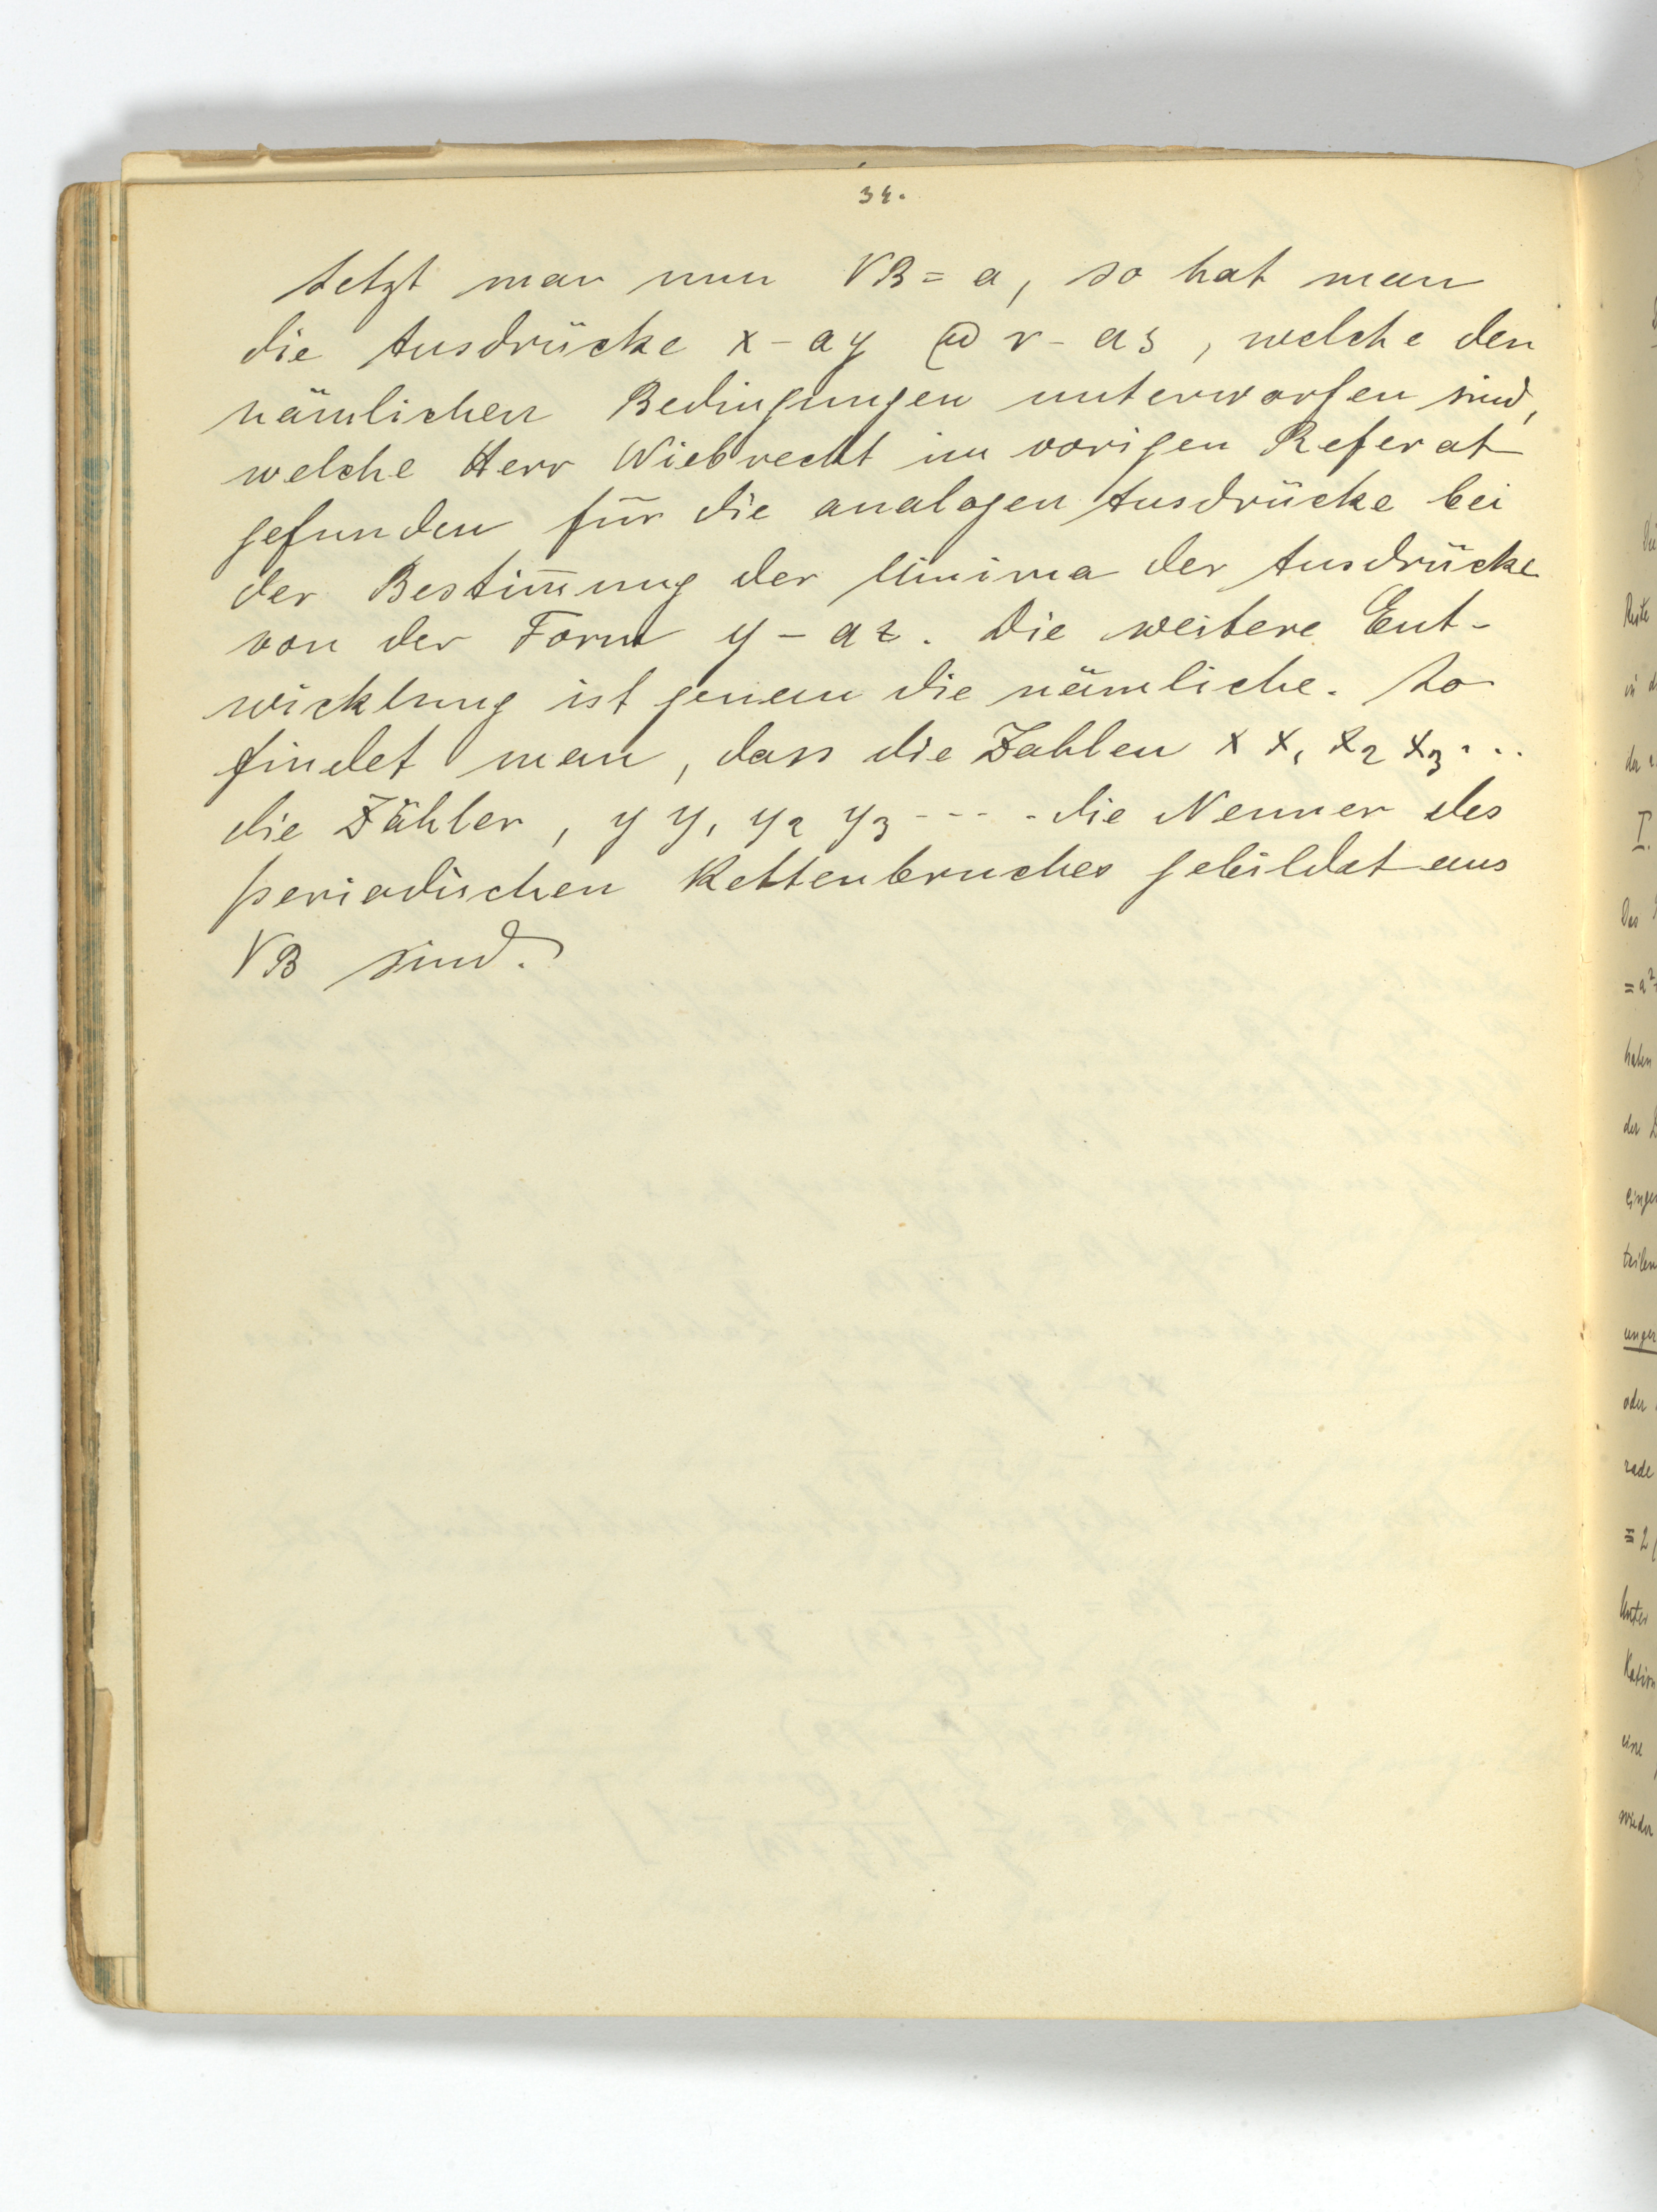 34.
Setzt man nun √B = a, so hat man
die Ausdrücke x - ay @ r - as, welche den
nämlichen Bedingungen unterworfen sind,
welche Herr Wiebrecht im vorigen Referat
gefunden für die analogen Ausdrücke bei
der Bestim̅ung der Minima der Ausdrücke
von der Form y - az. Die weitere Ent-
wicklung ist genau die nämliche. So
findet man, dass die Zahlen x x₁ x₂ x₃ ...
die Zähler, y y₁ y₂ y₃ ---- die Nenner des
periodischen Kettenbruches gebildet aus
√B sind.